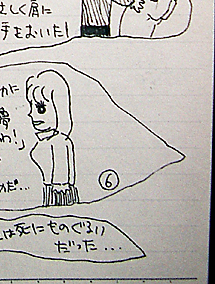 さしく肩に
手をおいた!
かに
夢
わ!」
だ…
⑥
は死にものぐるい
だった...